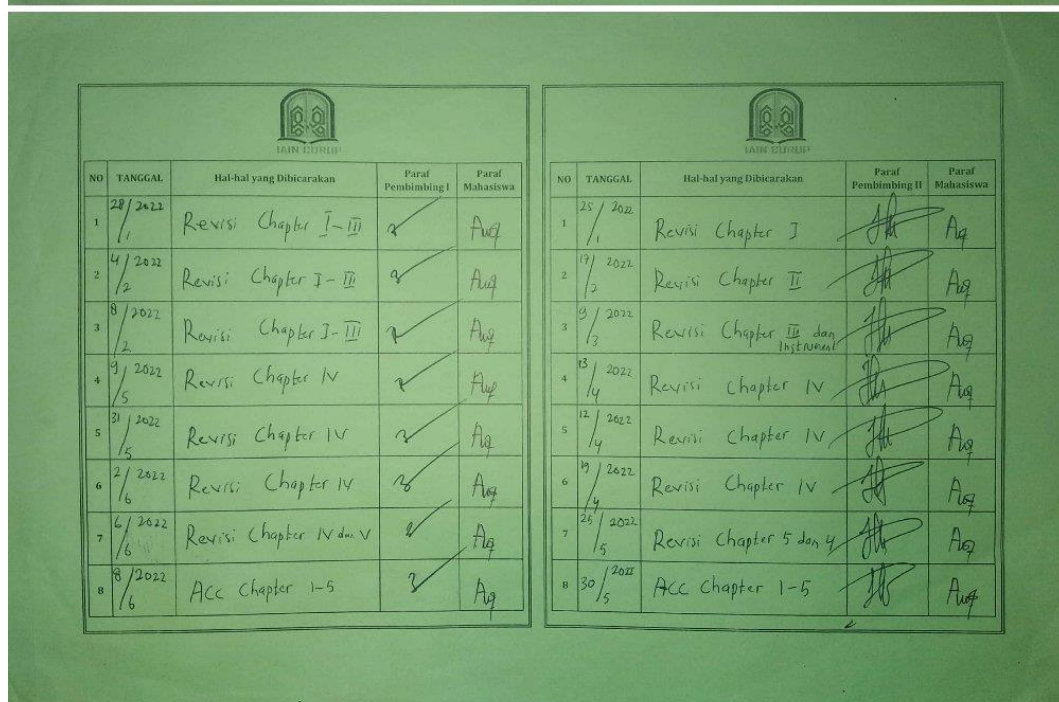 IAIN CURUP
NO TANGGAL Hal-hal yang Dibicarakan Paraf Pembimbing I Paraf Mahasiswa
1 28/1 2022 Revisi Chapter I-III
2 4/2 2022 Revisi Chapter I-III
3 8/2 2022 Revisi Chapter I-III
4 9/5 2022 Revisi Chapter IV
5 31/5 2022 Revisi Chapter IV
6 2/6 2022 Revisi Chapter IV
7 6/6 2022 Revisi Chapter IV dan V
8 8/6 2022 ACC Chapter 1-5
IAIN CURUP
NO TANGGAL Hal-hal yang Dibicarakan Paraf Pembimbing II Paraf Mahasiswa
1 25/1 2022 Revisi Chapter I
2 17/2 2022 Revisi Chapter II
3 9/3 2022 Revisi Chapter III dan Instrument
4 13/4 2022 Revisi Chapter IV
5 12/4 2022 Revisi Chapter IV
6 19/4 2022 Revisi Chapter IV
7 25/5 2022 Revisi Chapter 5 dan 4
8 30/5 Acc Chapter 1-5